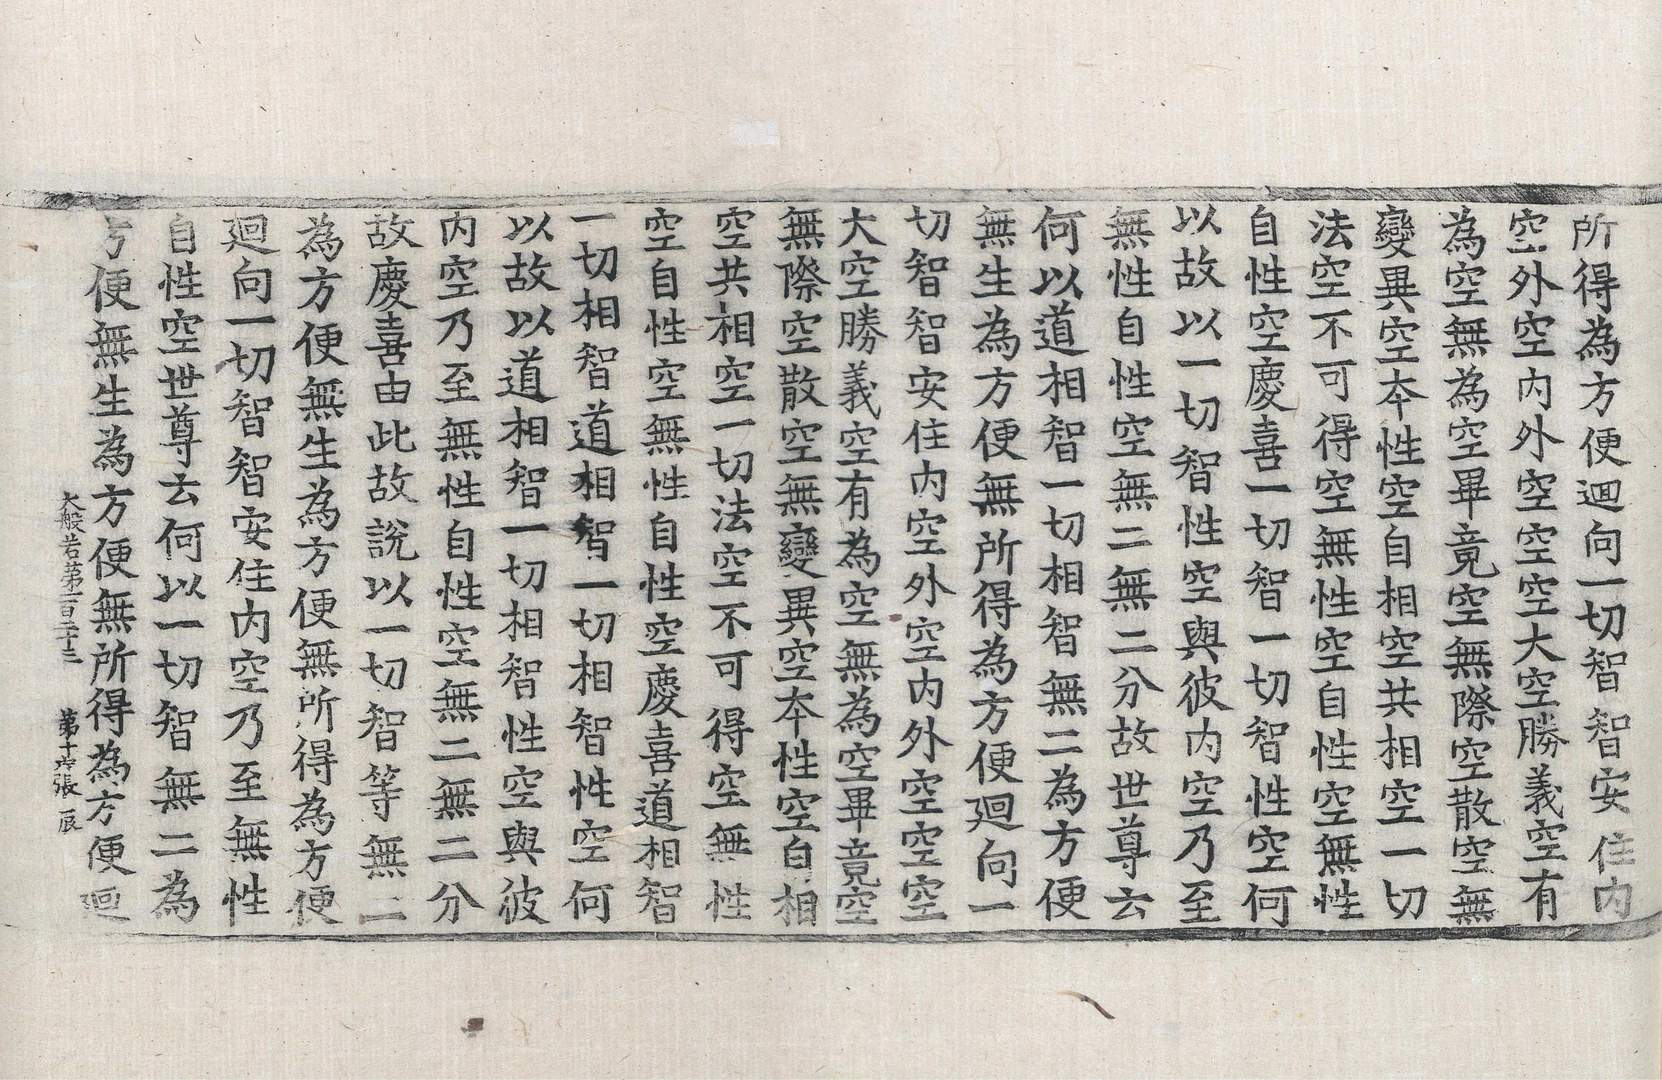 所得為方便迴向一切智智安住内
空外空内外空空空大空勝義空有
為空無為空畢竟空無際空散空無
變異空本性空自相空共相空一切
法空不可得空無性空自性空無性
自性空慶喜一切智一切智性空何
以故以一切智性空與彼内空乃至
無性自性空無二無二分故世尊云
何以道相智一切相智無二為方便
無生為方便無所得為方便迴向一
切智智安住内空外空内外空空空
大空勝義空有為空無為空畢竟空
無際空散空無變異空本性空自相
空共相空一切法空不可得空無性
空自性空無性自性空慶喜道相智
一切相智道相智一切相智性空何
以故以道相智一切相智性空與彼
内空乃至無性自性空無二無二分
故慶喜由此故説以一切智等無二
為方便無生為方便無所得為方便
迴向一切智智安住内空乃至無性
自性空世尊云何以一切智無二為
方便無生為方便無所得為方便迴
大般若第一百二十三 第十六張 辰